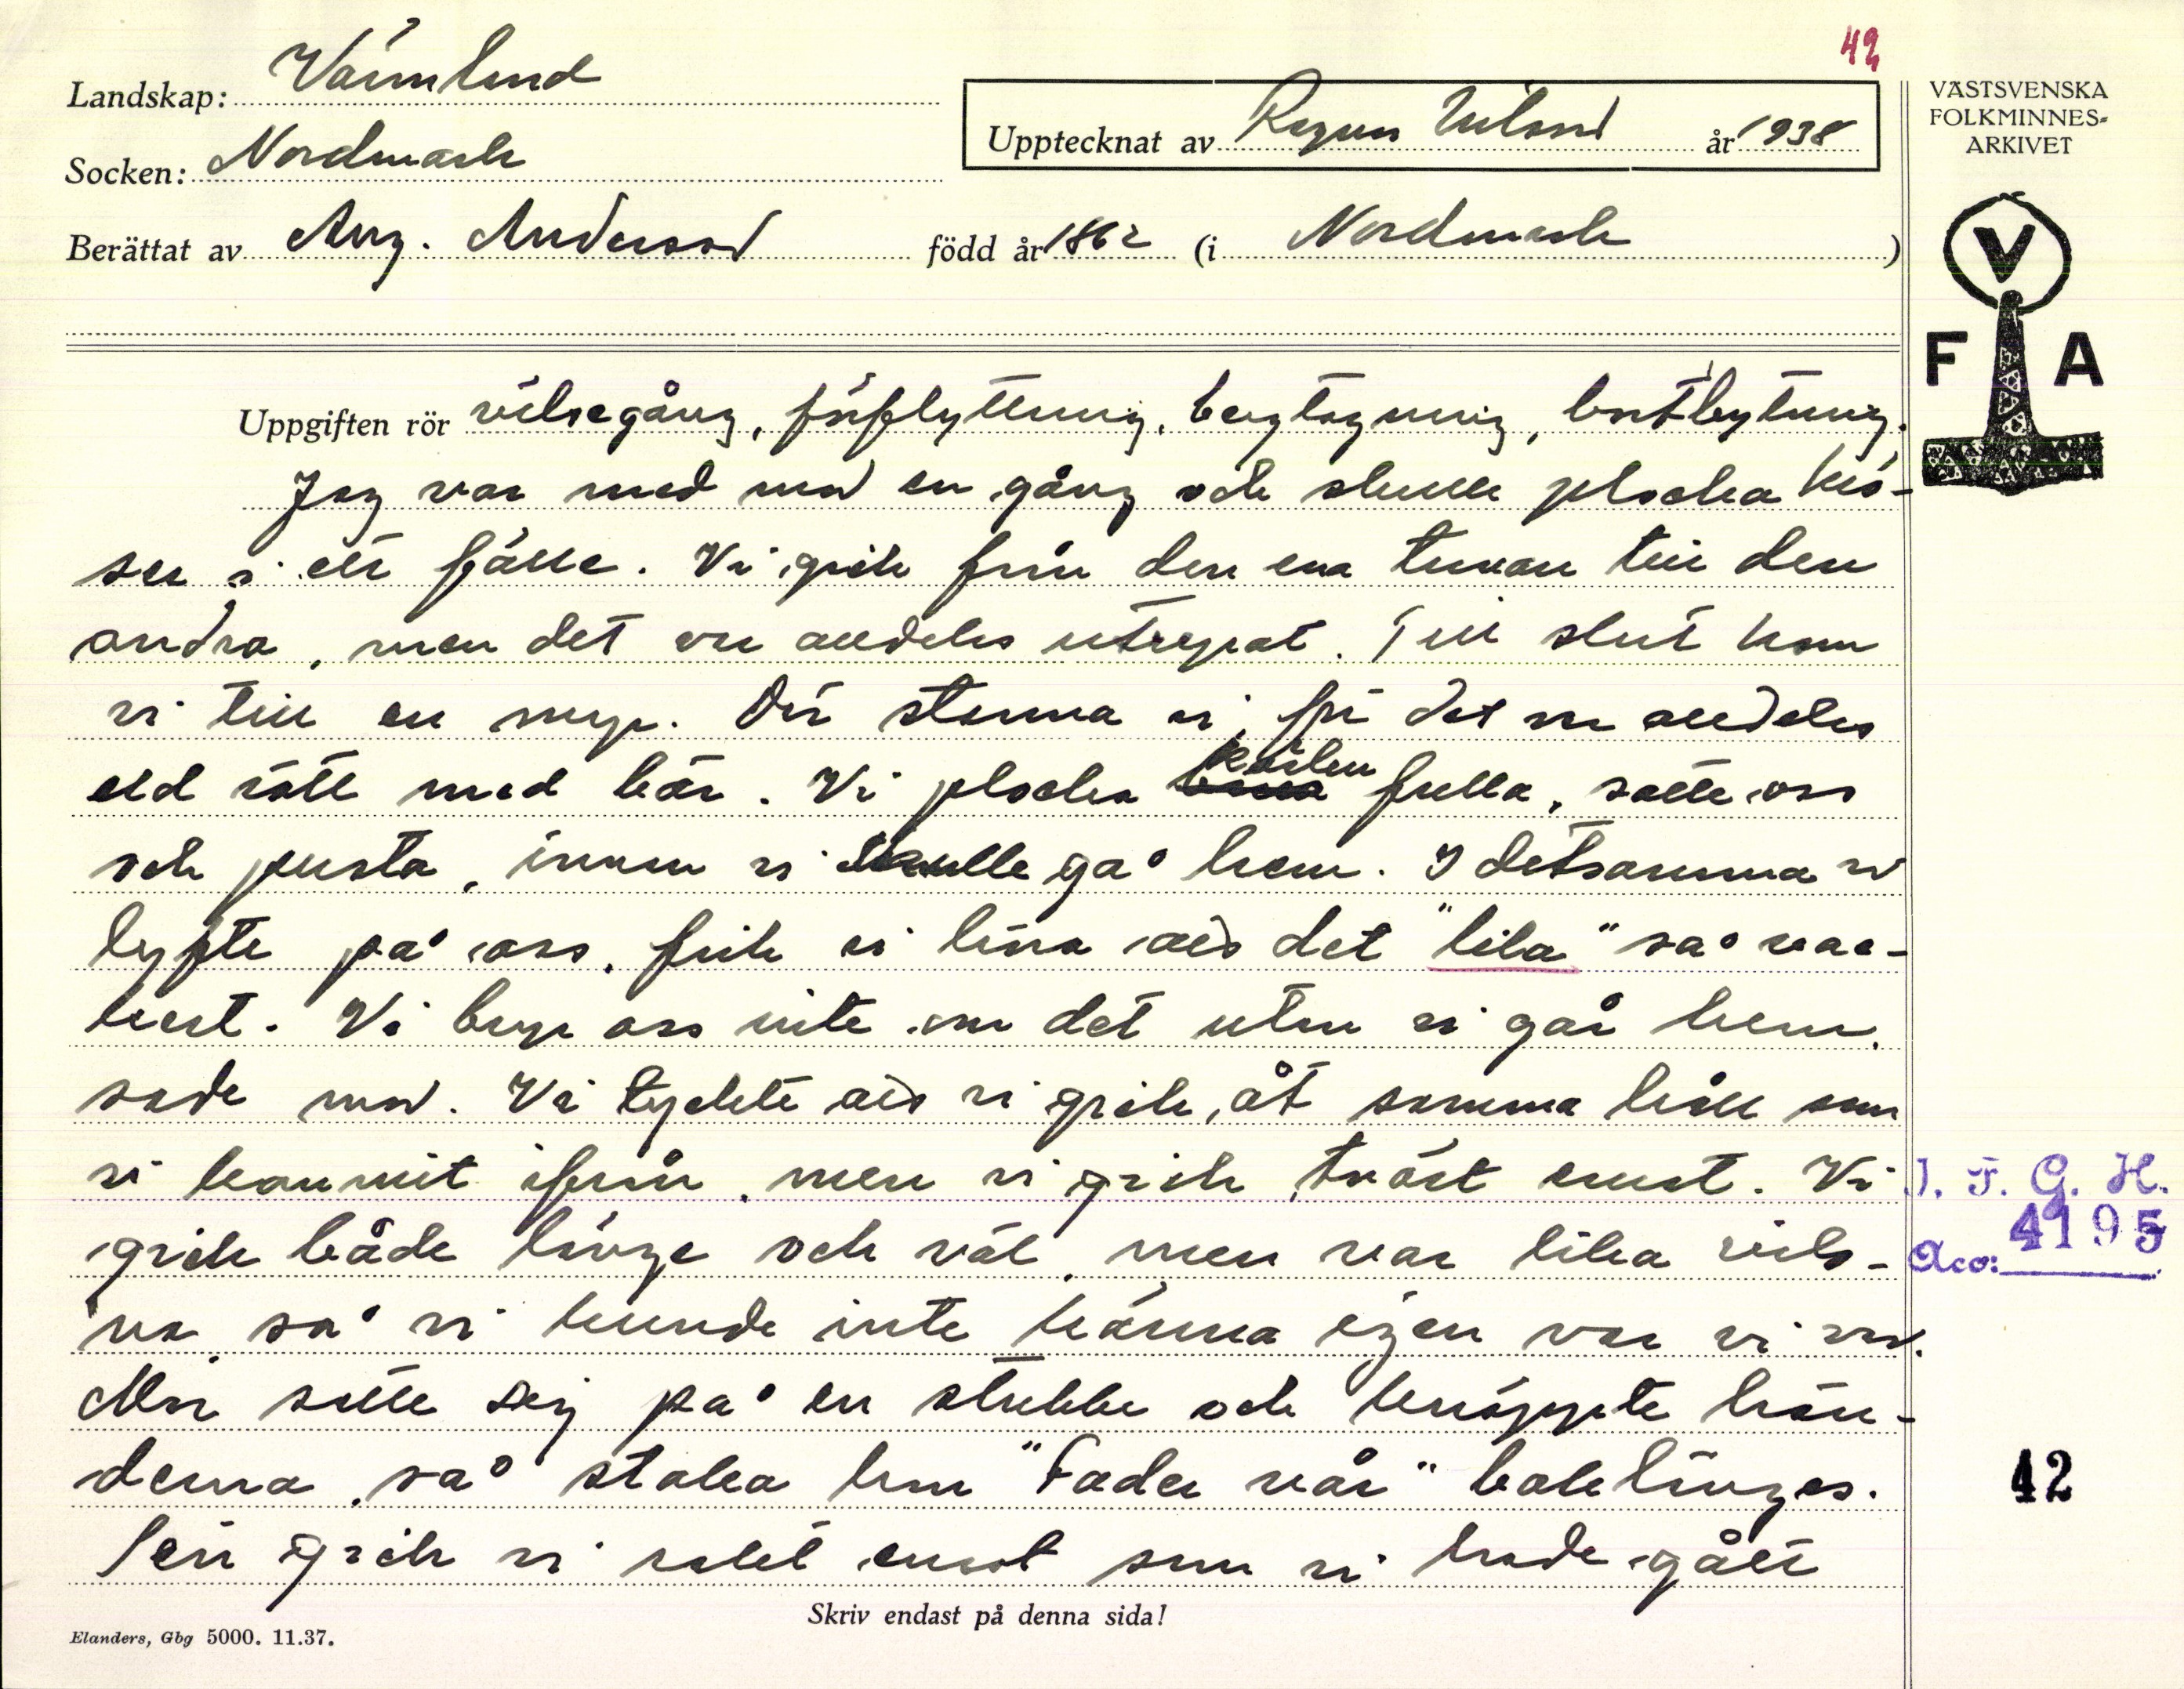 42
Landskap: Värmland
Socken: Nordmark
Upptecknat av Ragnar Nilsson år 1938
Berättat av Aug. Andersson född år 1862 (i Nordmark)
VÄSTSVENSKA
FOLKMINNES-
ARKIVET
V
F A
Uppgiften rör vilsegång, förflyttning, bergtagning, bortbytning.
Jag var med mor en gång och skulle plocka krö-
ser i ett fälle. Vi gick från den ena tuvan till den
andra, men det var alldeles utrepat. Till slut kom
vi till en myr. Där stanna vi, för det var alldeles
eld rött med bär. Vi plocka korken fulla, satte oss
och pusta, innan vi skulle gå hem. I detsamma vi
lyfte på oss, fick vi höra att det "lila" så vac-
kert. Vi bryr oss inte om det utan vi går hem,
sade mor. Vi tyckte att vi gick åt samma håll som
vi kommit ifrån, men vi gick tvärt emot. Vi
gick både länge och väl, men var lika vils-
na, så vi kunde inte känna igen var vi var.
Mor satte sej på en stubbe och knäppte hän-
derna, så staka hon "Fader vår" baklänges.
Sen gick vi rakt emot som vi hade gått
J. F. G. H.
Acc: 4195
42
Skriv endast på denna sida!
Elanders, Gbg 5000. 11.37.